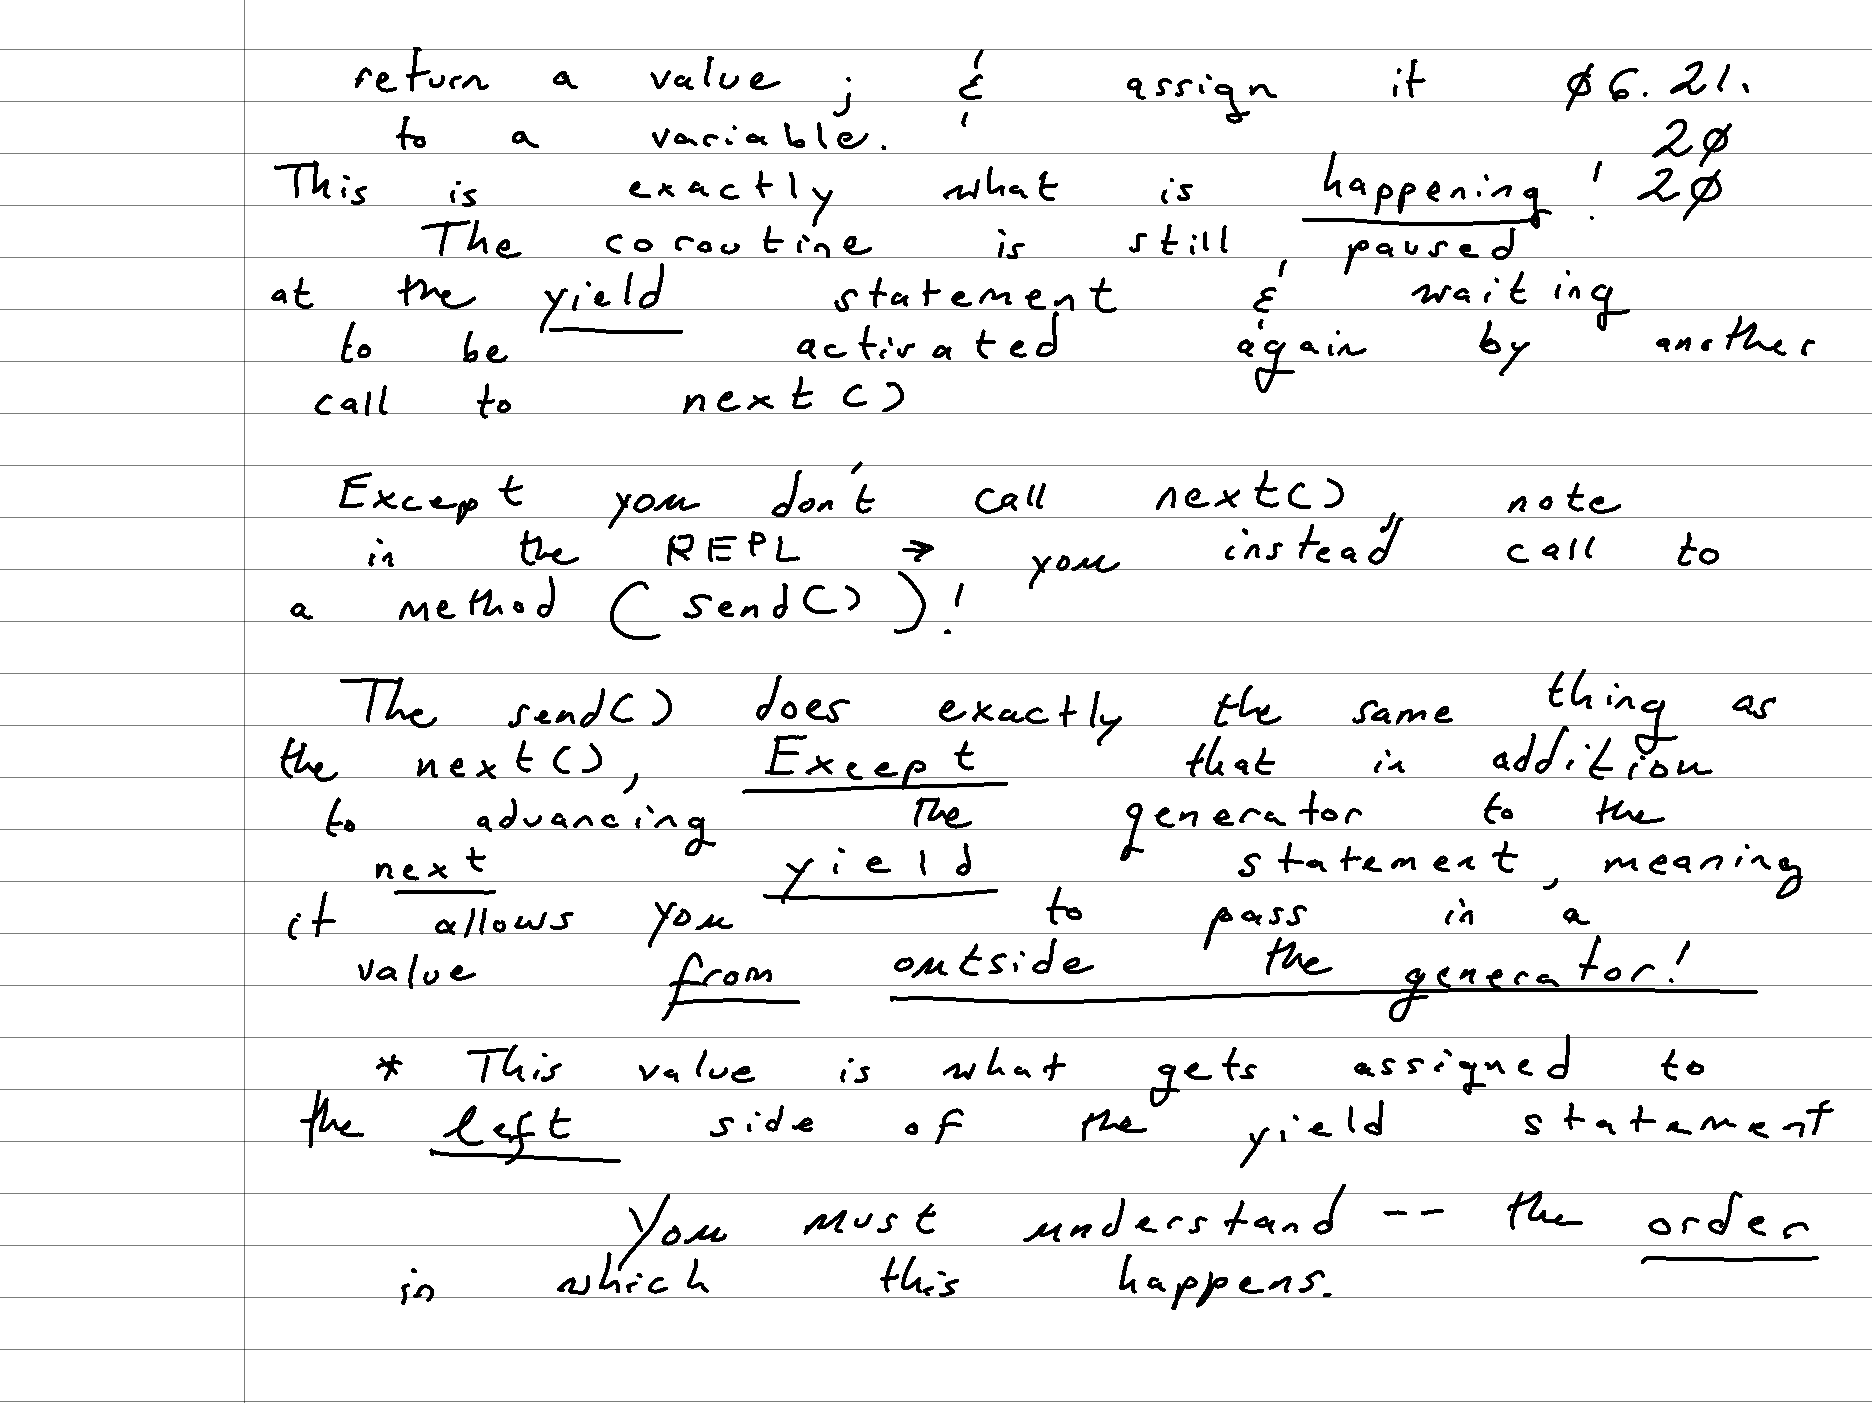 return a value ; & assign it ø6.21.
to a variable. 2ø
This is exactly what is happening! 2ø
The coroutine is still paused
at the yield statement & waiting
to be activated again by another
call to next()
Except you don't call next(), note
in the REPL → you instead call to
a method (send())!
The send() does exactly the same thing as
the next(), Except that in addition
to advancing the generator to the
next yield statement, meaning
it allows you to pass in a
value from outside the generator!
* This value is what gets assigned to
the left side of the yield statement
You must understand -- the order
in which this happens.